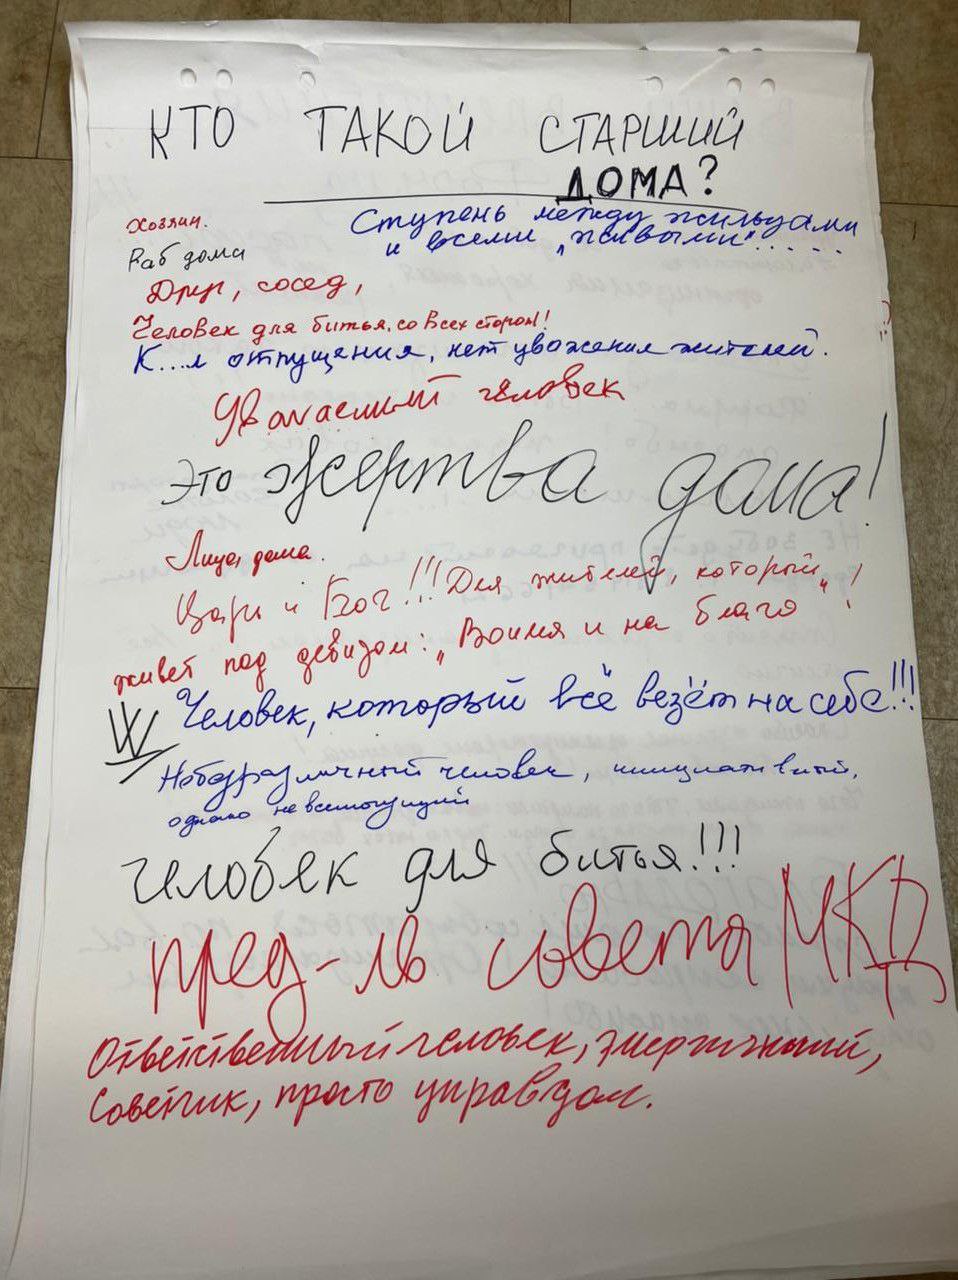 КТО ТАКОЙ СТАРШИЙ
ДОМА?
Хозяин.
Ступень между жильцами
и всеми „живыми"......
Раб дома
Друг, сосед,
Человек для битья, со всех сторон!
К...л отпущения, нет уважения жителей.
Уважаемый человек
Это жертва дома!
Лицо, дома.
Царь и Бог!!! Для жителей, который
живёт под девизом: „Воимя и на благо"!
Человек, который всё везёт на себе!!!
Небезразличный человек, инициативный,
однако не всемогущий
Человек для битья!!!
пред-ль совета МКД
Ответственный человек, энергичный,
Советчик, просто управдом.